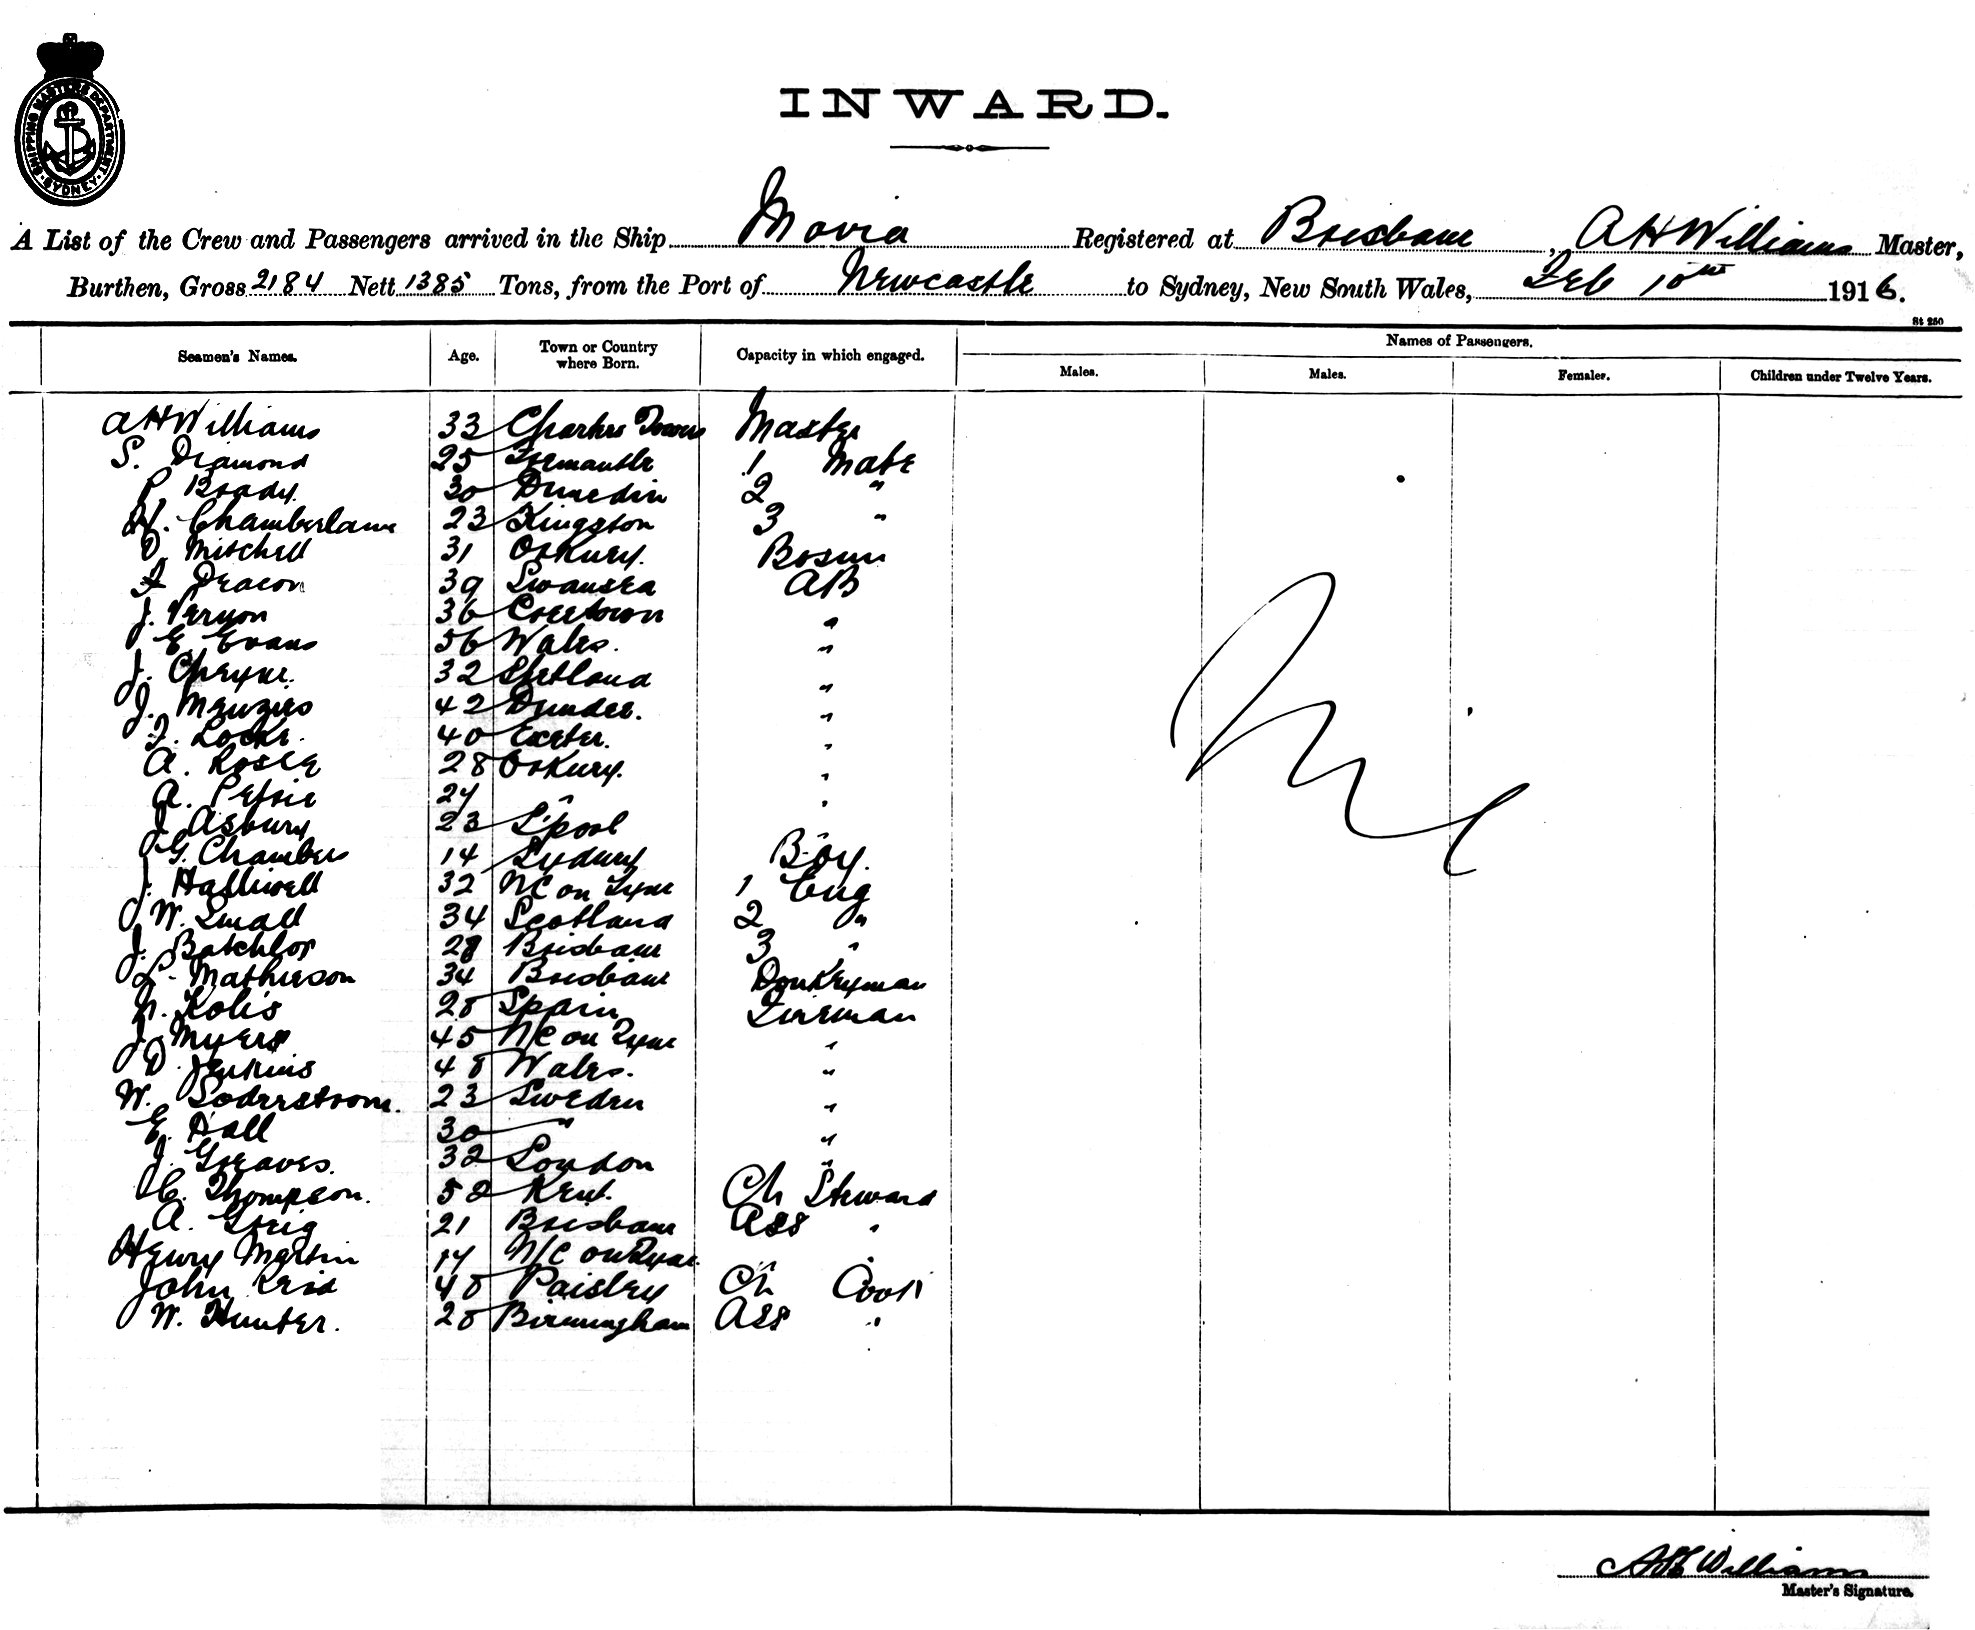 SHIPPING MASTERS DEPARTMENT · SYDNEY ·
INWARD.
A List of the Crew and Passengers arrived in the Ship Moria Registered at Brisbane, AHWilliams Master,
Burthen, Gross 2184 Nett 1385 Tons, from the Port of Newcastle to Sydney, New South Wales, Feb 10th 1916.
St 250
Seamen's Names. Age. Town or Country where Born. Capacity in which engaged. Names of Passengers.
Males. Males. Females. Children under Twelve Years.
AHWilliams 33 Charters Towers Master
S. Diamond 25 Fremantle 1 Mate
P. Brady. 30 Dunedin 2 "
H. Chamberlain 23 Kingston 3 "
D. Mitchell 31 Orkney. Bosun
F Deacon 39 Swansea AB
J. Vernon 36 "
E. Evans 56 Wales. "
J. Cheyne. 32 Shetland "
J. Menzies 42 Dundee. "
F. Locke. 40 Exeter. "
A. 28 Orkney. "
A. Petrie 24 " "
J Asbury 23 L'pool "
G. Chambers 14 Sydney Boy.
J. Halliwell 32 NC on Tyne 1 Eng
W. Small 34 Scotland 2 "
J. Batchlor 28 Brisbane 3 "
L. Mathieson 34 Brisbane Donkeyman
28 Spain Fireman
J. Myers 45 N/C on Tyne "
D. Jenkins 48 Wales. "
W. Soderstrom. 23 Sweden "
E. Dall 30 " "
J. Greaves. 32 London "
C. Thompson. 52 Kent. Ch Steward
A. Greig 21 Brisbane Ass "
Henry Martin 17 N/C on Tyne. "
John Reid 48 Paisley Ch Cook
W. Hunter. 28 Birmingham Ass "
Nil
AHWilliams
Master's Signature.